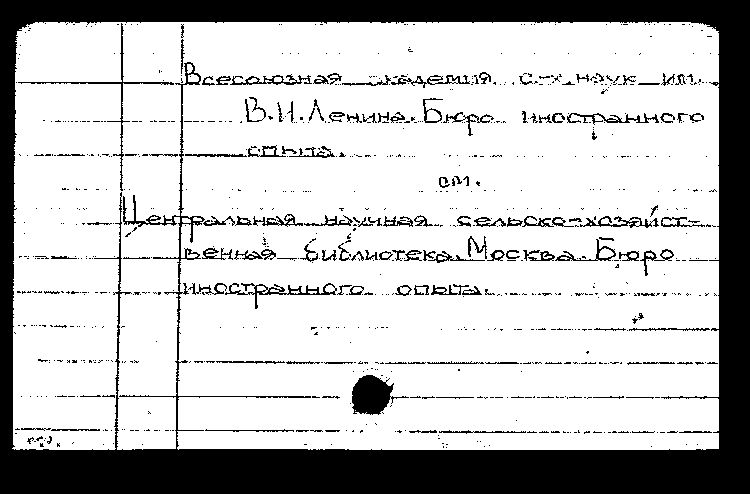 Всесоюзная академия с.-х. наук им.
В.И.Ленина. Бюро иностранного
опыта.
см.
Центральная научная сельско-хозяйст-
венная библиотека. Москва. Бюро
иностранного опыта.